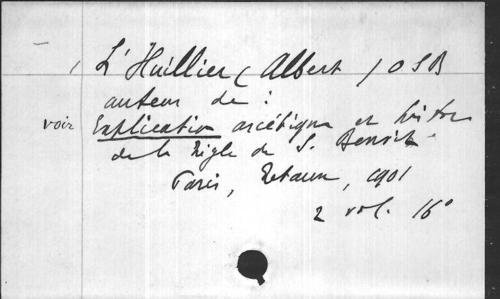 L'Huillier (Albert) OSB
auteur de :
voir Explication ascétique et histor
de la Règle de S. Benoît
Paris, Retaux, 1901
2 vol. 16°